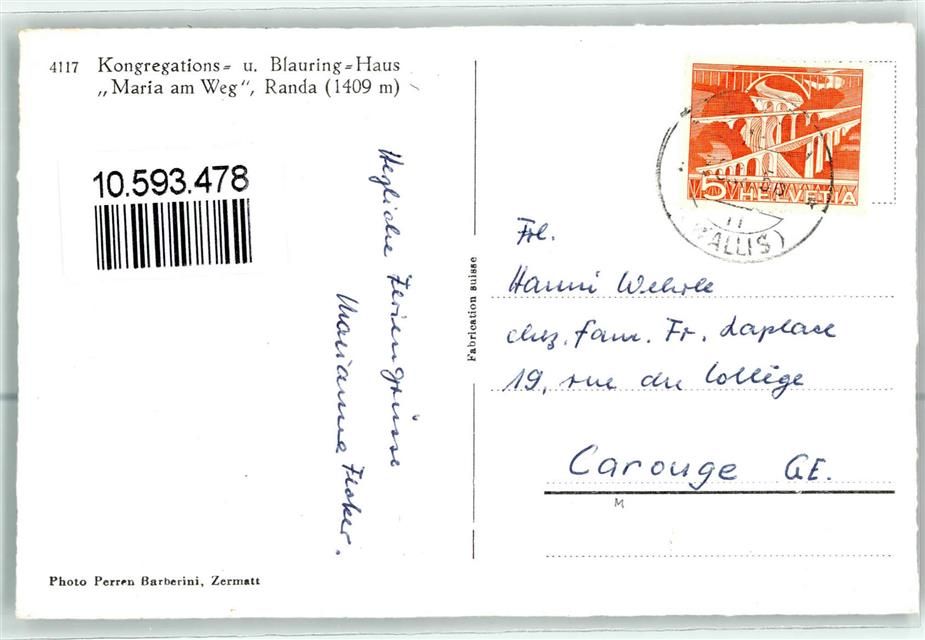 4117 Kongregations= u. Blauring=Haus
„Maria am Weg“, Randa (1409 m)
10.593.478
Herzliche Feriengrüsse
Marianne Fischer.
Fabrication suisse
5 HELVETIA
(WALLIS)
Frl.
Hanni Wehrle
chez. Fam. Fr. Laplace
19, rue du Collège
Carouge GE.
M
Photo Perren Barberini, Zermatt